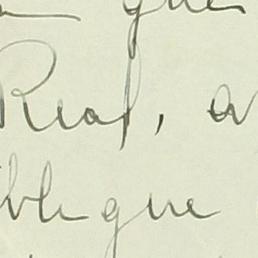 que
Real, a
blique